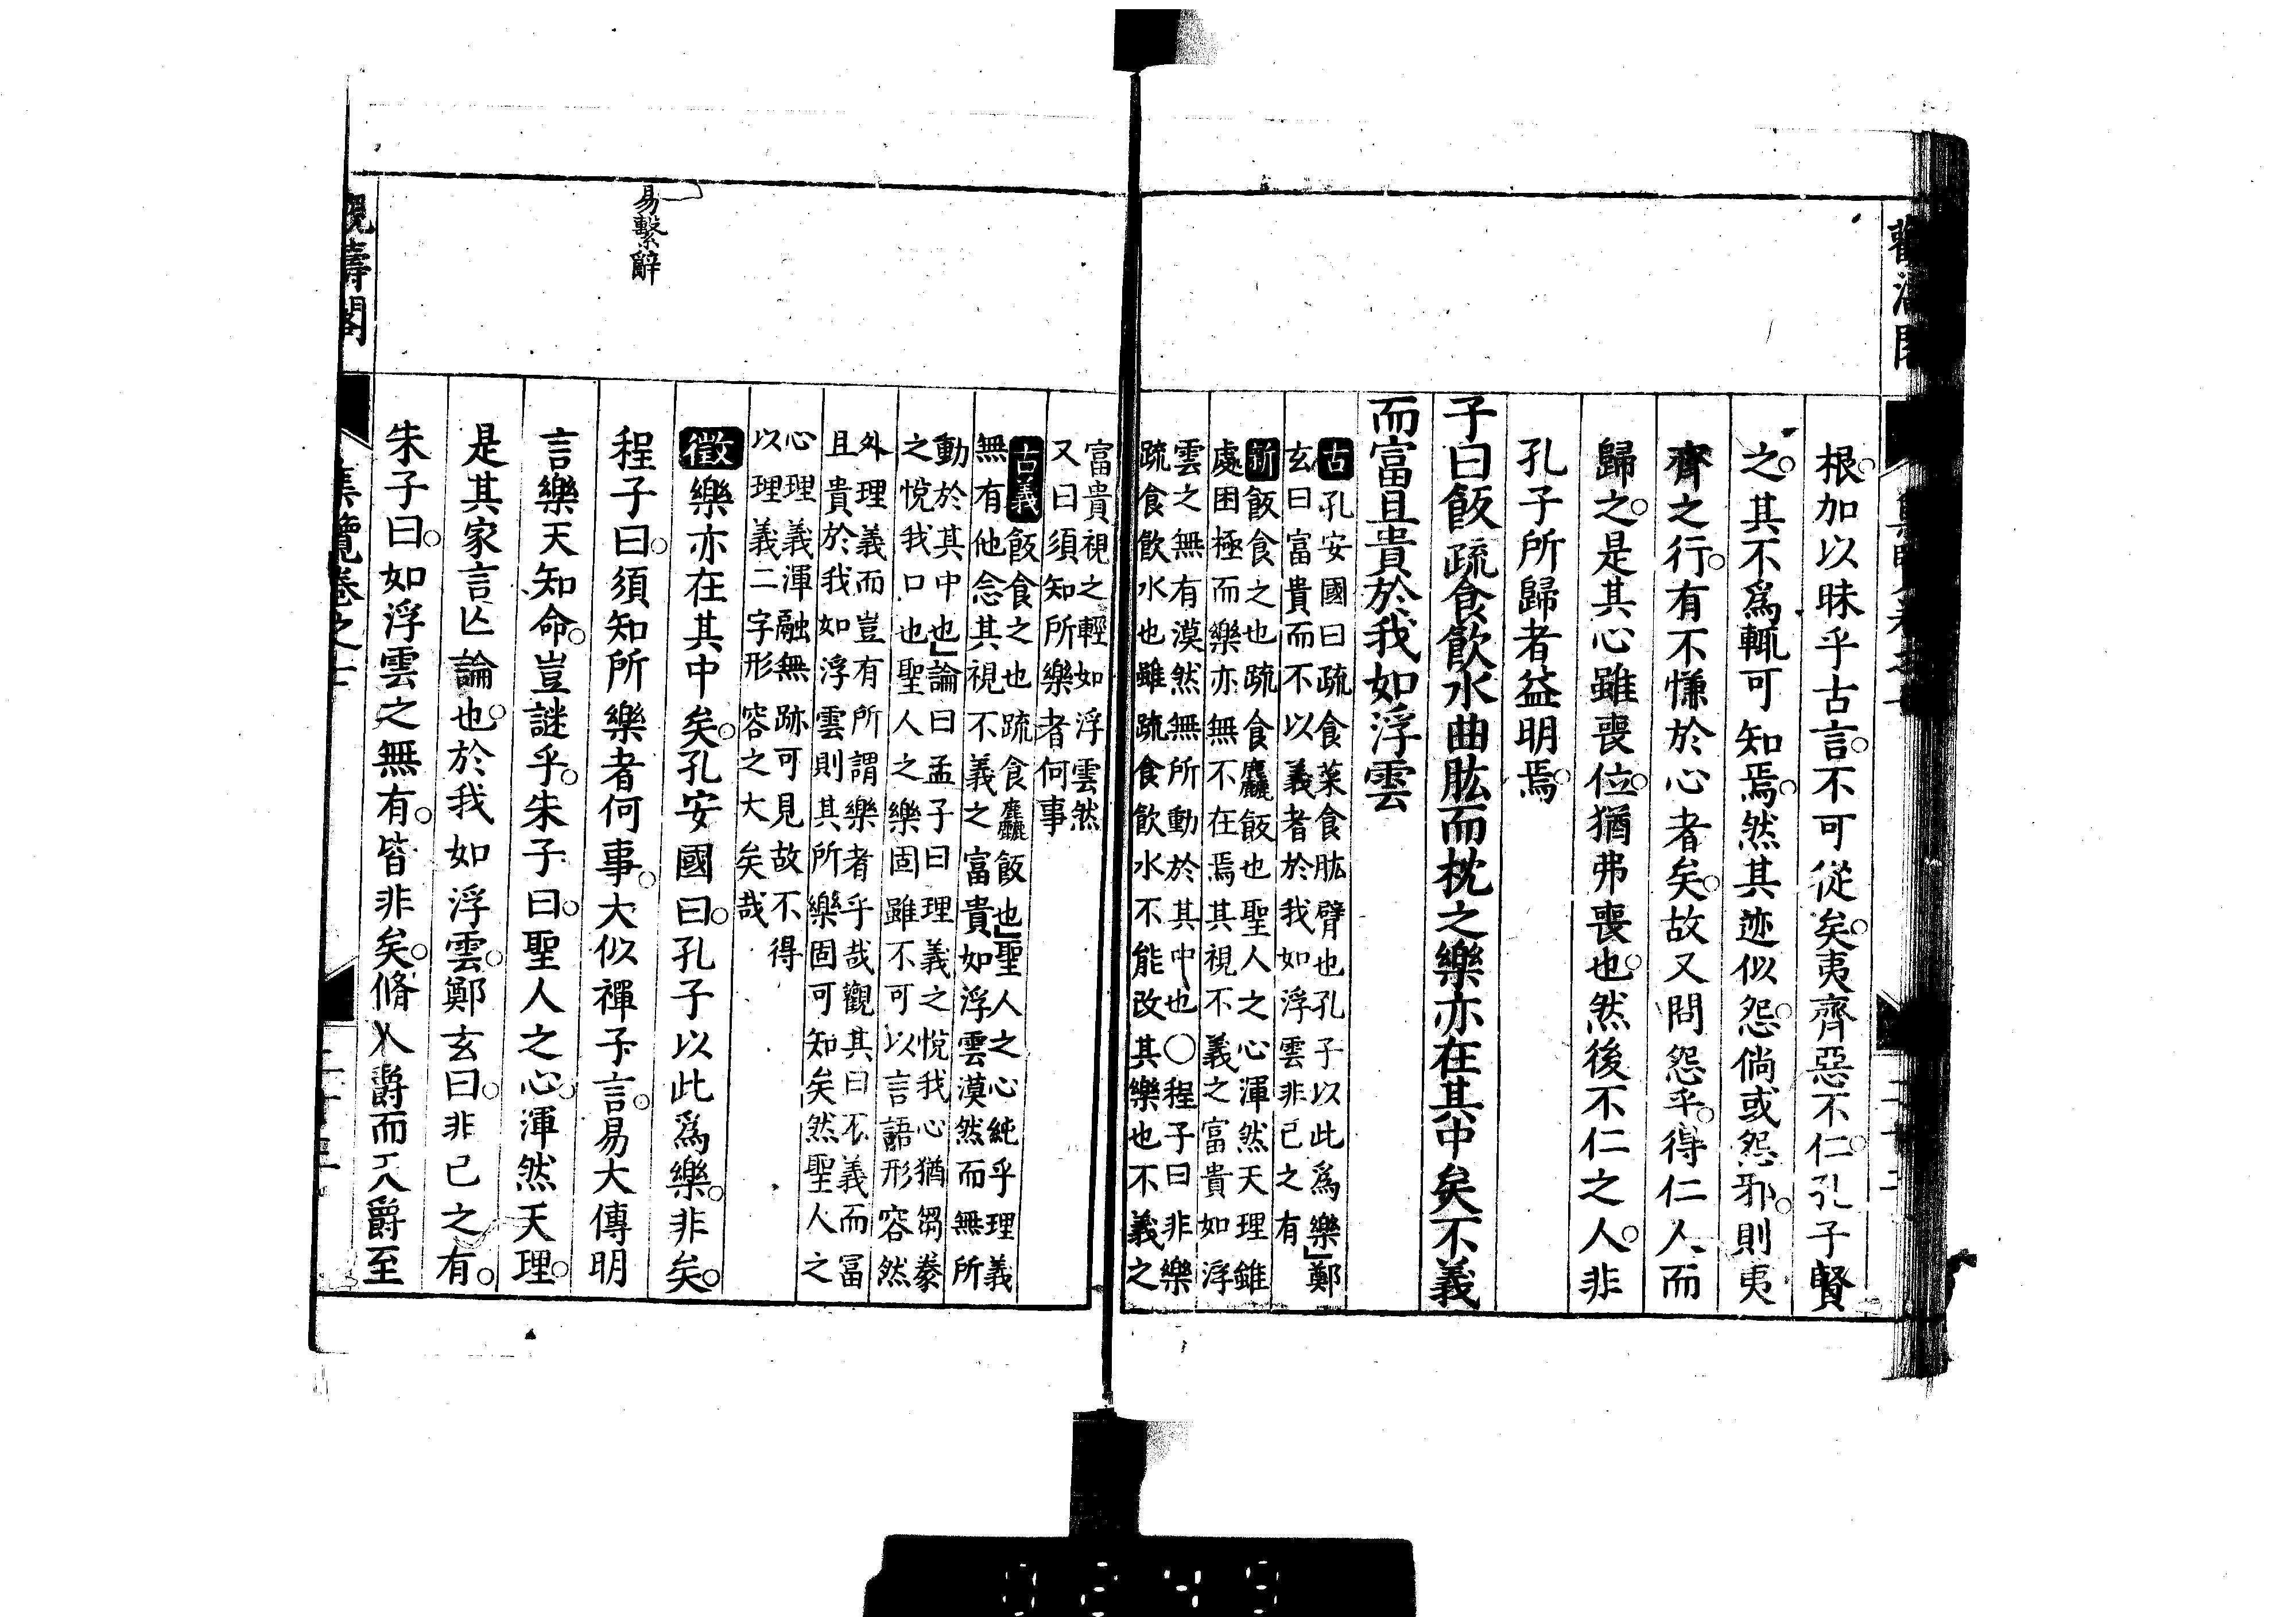 根加以昧乎古言。不可從矣。夷齊惡不仁。孔子賢
之。其不爲輒可知焉。然其迹似怨。倘或怨邪。則夷
齊之行。有不慊於心者矣。故又問怨乎。得仁人而
歸之。是其心雖喪位。猶弗喪也。然後不仁之人。非
孔子所歸者益明焉。
子曰飯疏食飲水曲肱而枕之樂亦在其中矣不義
而富且貴於我如浮雲
古孔安國曰疏食菜食肱臂也孔子以此爲樂」鄭
玄曰富貴而不以義者於我如浮雲非己之有
新飯食之也疏食麤飯也聖人之心渾然天理雖
處困極而樂亦無不在焉其視不義之富貴如浮
雲之無有漠然無所動於其中也○程子曰非樂
疏食飲水也雖疏食飲水不能改其樂也不義之
富貴視之輕如浮雲然
又曰須知所樂者何事
古義飯食之也疏食麤飯也」聖人之心純乎理義
無有他念其視不義之富貴如浮雲漠然而無所
動於其中也」論曰孟子曰理義之悅我心猶芻豢
之悅我口也聖人之樂固雖不可以言語形容然
外理義而豈有所謂樂者乎哉觀其曰不義而富
且貴於我如浮雲則其所樂固可知矣然聖人之
心理義渾融無跡可見故不得
以理義二字形容之大矣哉
徵樂亦在其中矣。孔安國曰。孔子以此爲樂。非矣。
程子曰。須知所樂者何事。大似禪子言。易大傳明
言樂天知命。豈謎乎。朱子曰。聖人之心。渾然天理。
是其家言亾論也。於我如浮雲。鄭玄曰。非己之有。
朱子曰。如浮雲之無有。皆非矣。脩人爵而天爵至
易繫辭
集覽卷之七